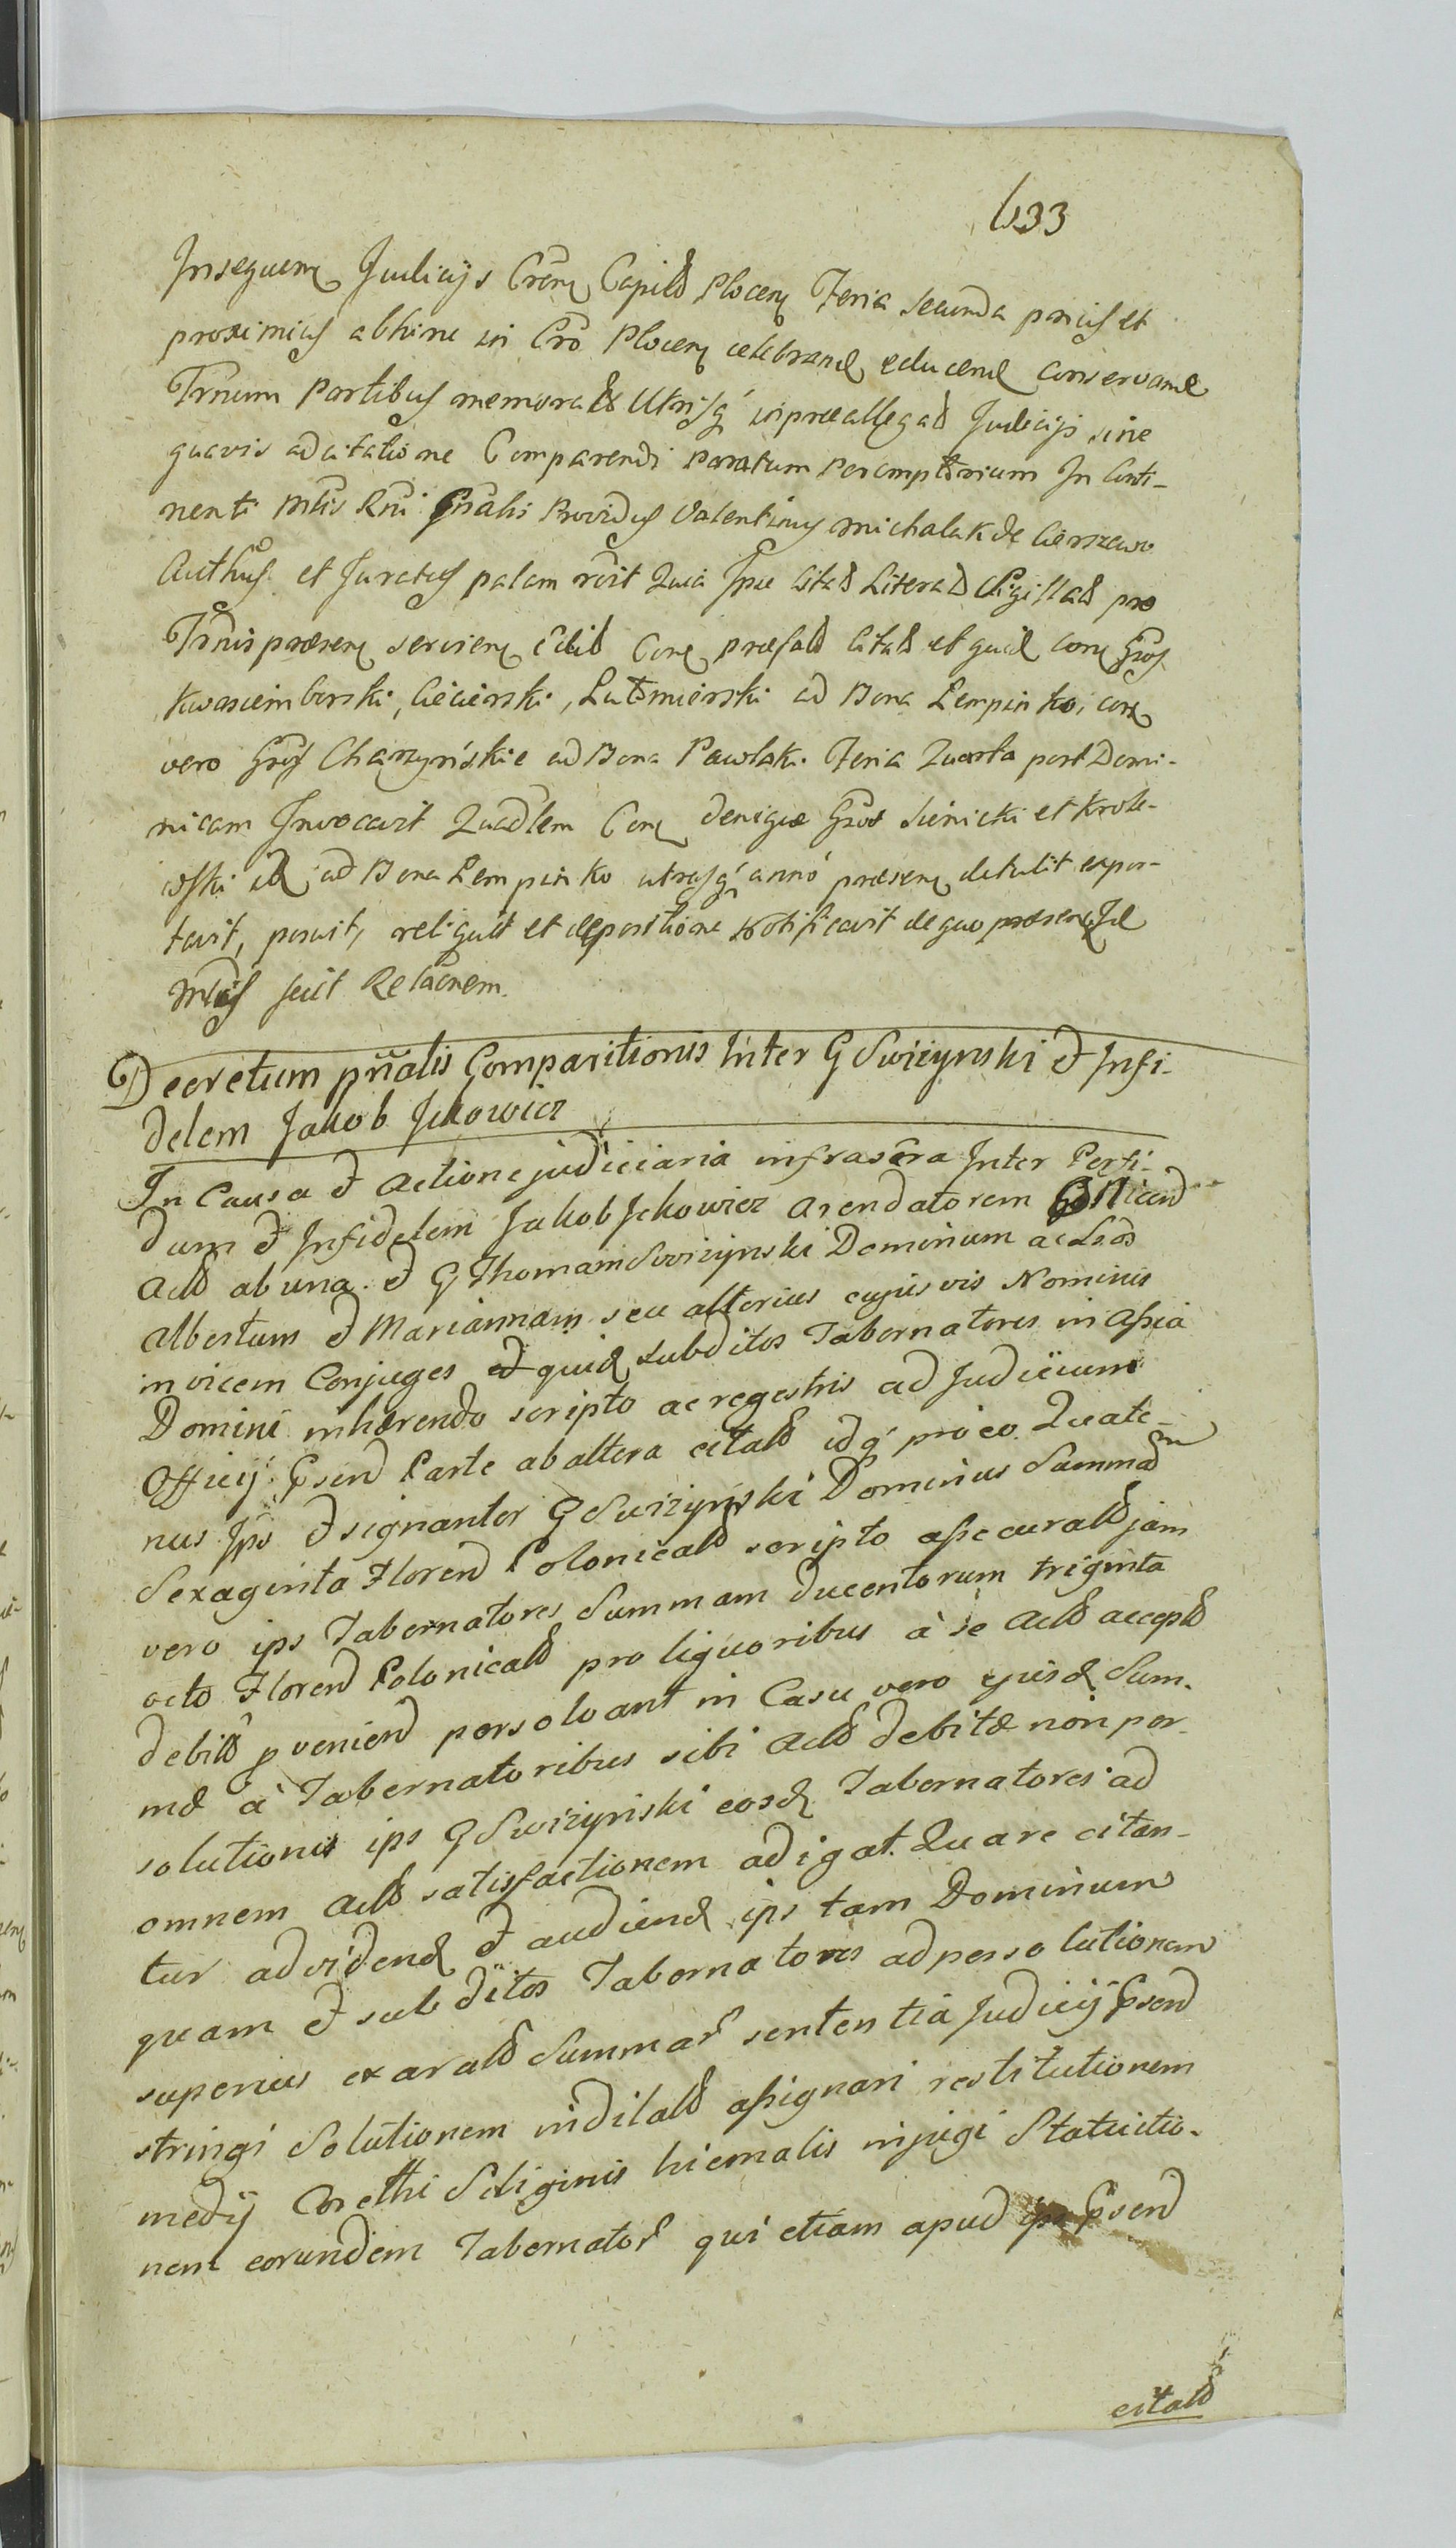 633
Insequen Judicijs Cren Capitd Plocen Feria secunda prius et
proximius abhinc in Cro Plocen celebrand educend conservand
Trnum Partibus memoratd Utrisq in præallegatd Judicijs sine
quavis adcitatione Comparendi paratum peremptorium In Conti-
nenti Mtis Rni Gnalis Providus Valentinus Michalak de Cierszewo
Authus et Juratus palam rcit Quia Ipse citatd Literatd Sigillatd pro
Trnis præsen servien Edid Con præfatd citatd et quid con Gros
Kwasiemborski, Ciecierski, Lutomierski ad Bona Lempinko, con
vero Gros Charzynskie ad Bona Pawlaki Feria Quarta post Domi-
nicam Invocavit Quadlem Con denique Gros Sienicki et Krole-
wski id ad Bona Lempinko utrasq anno præsen detulit expor-
tavit, posuit, reliquit et depositione notificavit de quo præsen
Mtius fecit Relaonem.
Decretum pnalis Comparitionis Inter G Swizynski et Infi-
delem Jakob Jckowicz
In Causa et Actione judiciaria infrascra Inter Perfi-
dum et Infidelem Jakob Jckowicz Arendatorem
Actd ab una et G Thomam Swizynski Dominum ac Laos
Albertum et Mariannam seu alterius cujusvis Nominis
invicem Conjuges et quid subditos Tabernatores in assia
Domini inhærendo scripto ac regestris ad Judicium
Officij Psend Parte ab altera citatd idq pro eo Quate-
nus Ips et signanter G Swizynski Dominus Summam
Sexaginta Floren Polonicatd scripto assecuratd jam
vero ips Tabernatores Summam ducentorum triginta
octo Floren Polonicatd pro liquoribus à se Actd acceptd
debitd pvenien persolvant in Casu vero ejusd Sum-
mæ à Tabernatoribus sibi Actd debitæ non per-
solutionis ips G Swizynski eosd Tabernatores ad
omnem Actd satisfactionem adigat. Quare citan-
tur ad vidend et audiend ips tam Dominum
quam et subditos Tabernatores ad persolutionem
superius exaratd Summar sententia Judicij Psend
stringi Solutionem inditatd assignari restitutionem
medij Corethi Siliginis hiemalis injugi Statuitio-
nem eorundem Tabernator qui etiam apud ips Psend
citatd